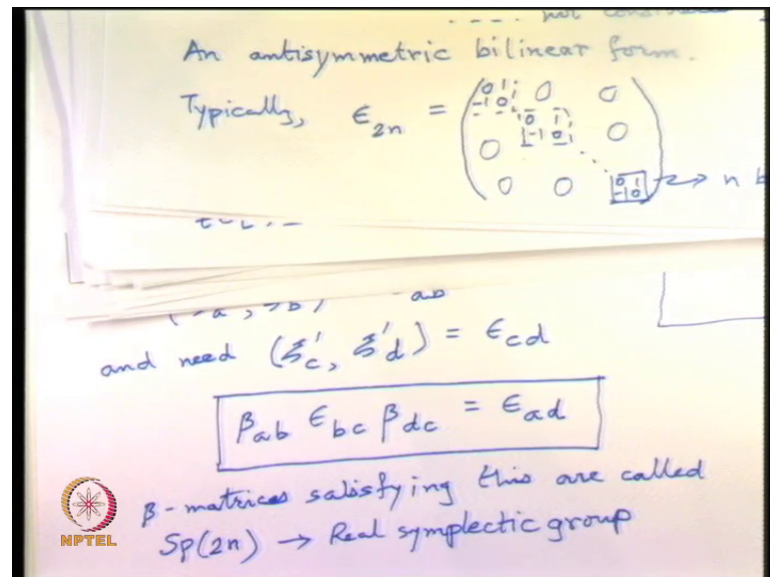 not
An antisymmetric bilinear form.
Typically, ϵ₂ₙ = ( 0 1 -1 0 0 0 0 0 1 -1 0 0 0 0 0 1 -1 0 ) → n b
and need (ξ'c, ξ'd) = ϵcd
βab ϵbc βdc = ϵad
β-matrices satisfying this are called
Sp(2n) → Real symplectic group
NPTEL